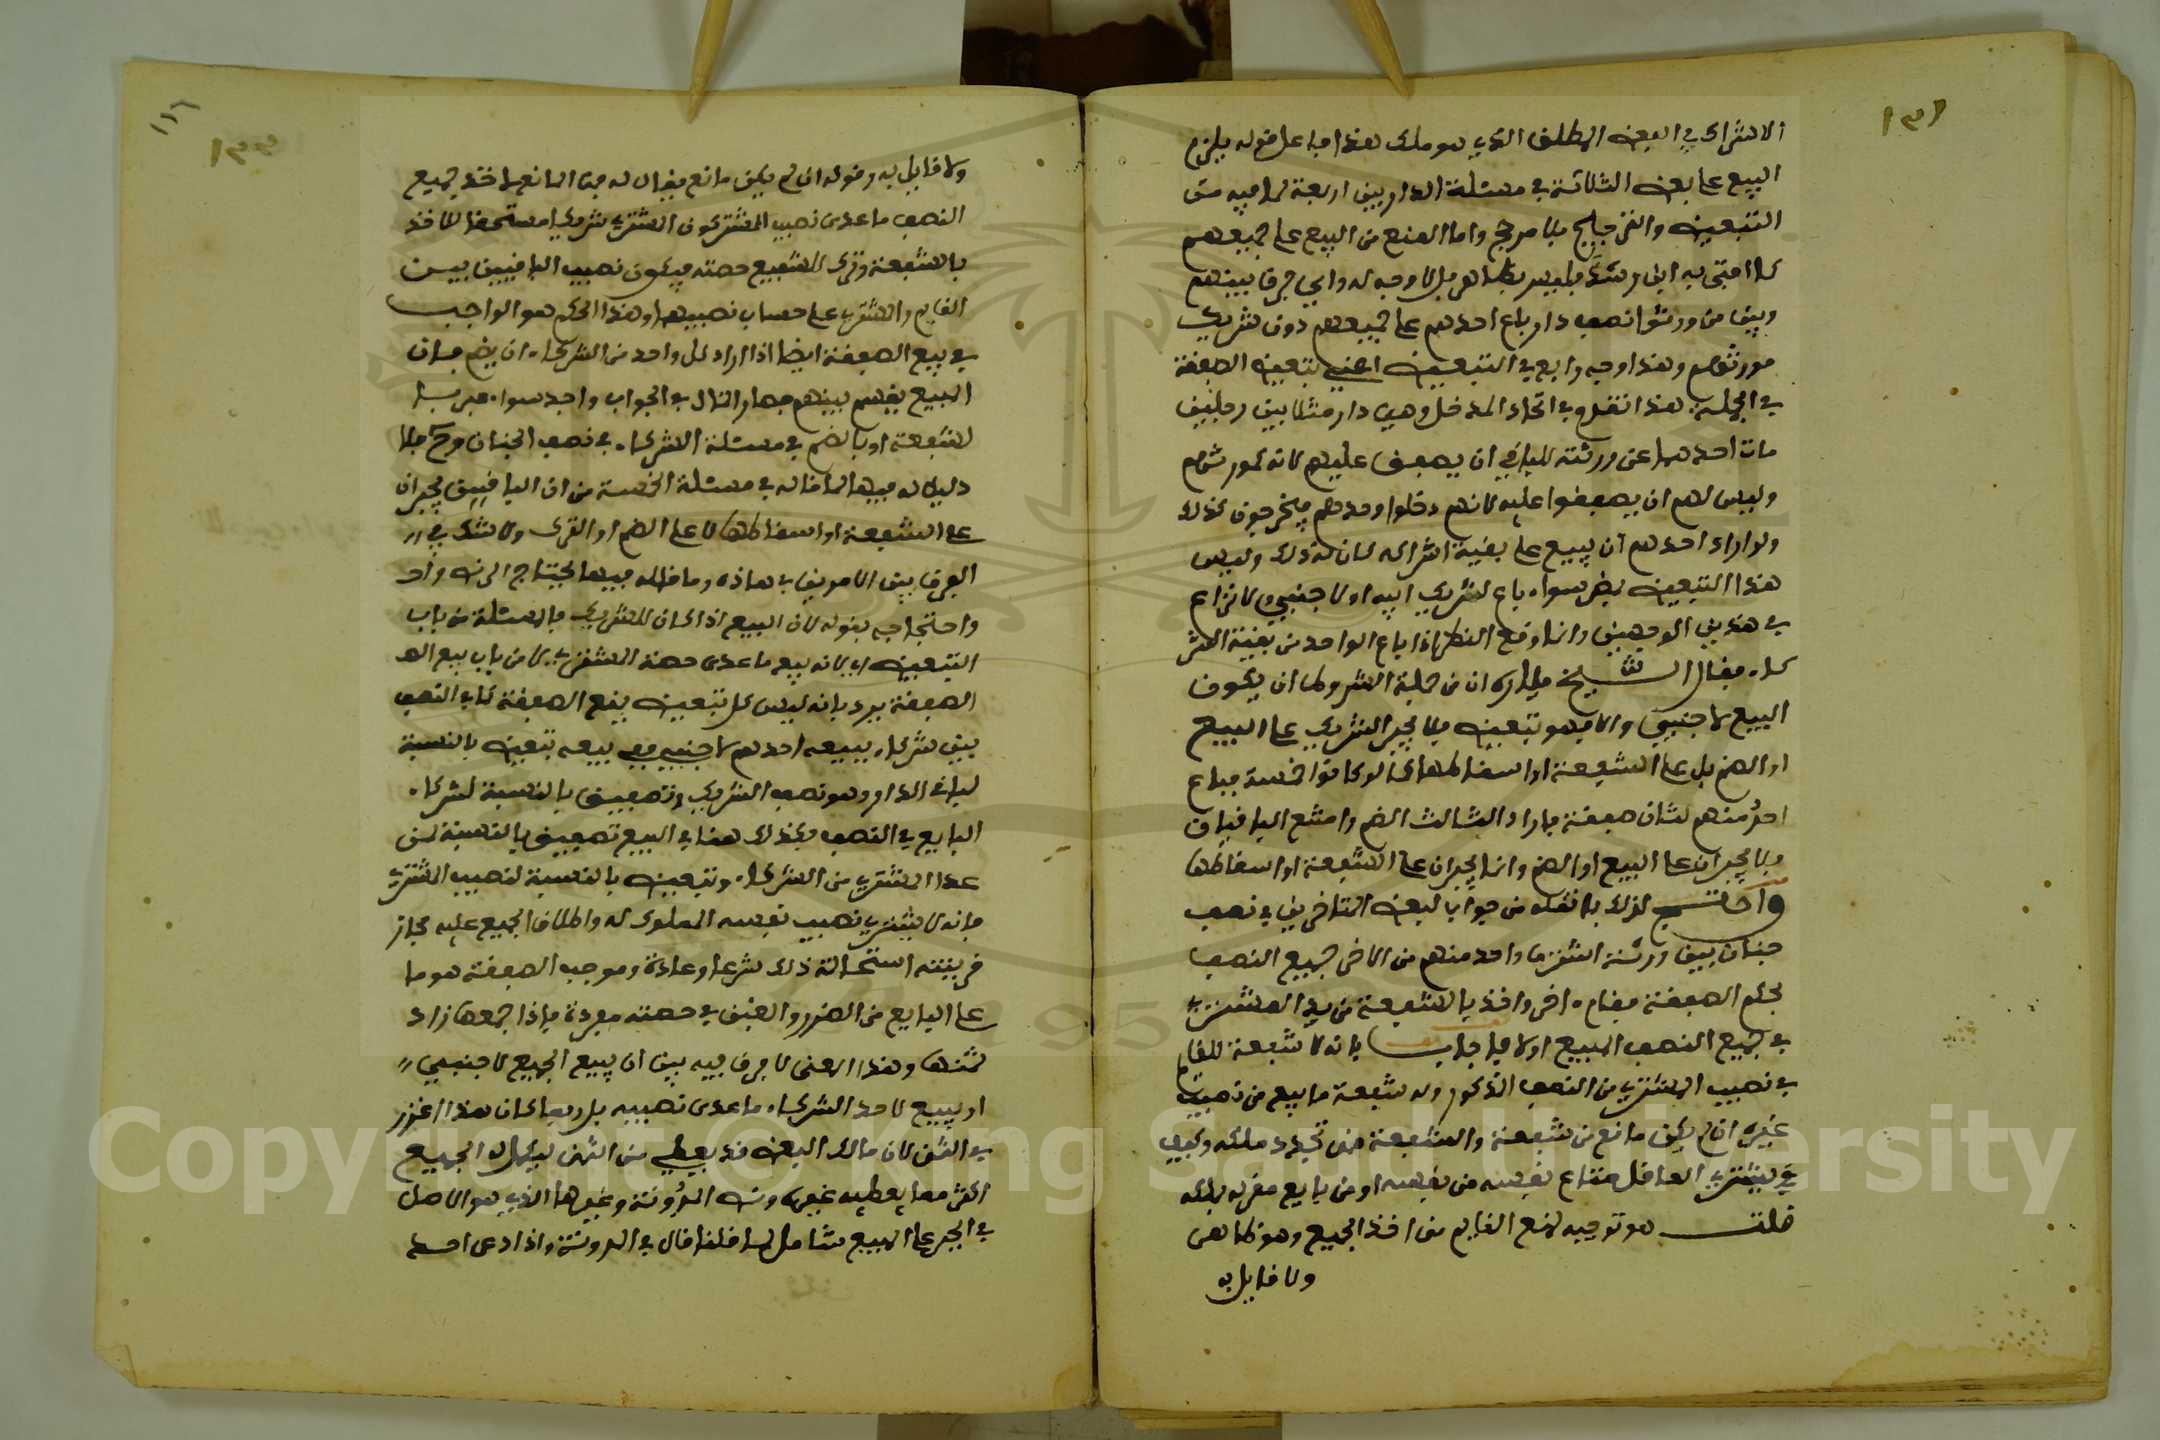 ١٣١
الاشتراك في البعض المطلق الذي هو ملك هذا فباعل قوله يلزم
البيع على بعض الثلاثة في مسئلة الدار بين اربعة لما فيه من
التبعيض والترجيح بلا مرجح واما المنع من البيع على جميعهم
كما افتى به ابن رشد فليس بظاهر بل لا وجه له واي فرق بينهم
وبين من ورثوا نصف دار باع احدهم على جميعهم دون شريك
مورثهم وهذا وجه رابع في التبعيض اعني بتبعيض الصفقة
في الجملة هذا تقدم في اتحاد المدخل وهي دار مثلا بين رجلين
مات احدهما عن ورثته للباقي ان يصفق عليهم لانه كمورثهم
وليس لهم ان يصفقوا عليه لانهم دخلوا وحدهم فيخرجون كذلك
ولو اراد احدهم ان يبيع على بقية اشراكه لكان له ذلك وليس
هذا التبعيض يضر سواء باع لشريك ابيه او لاجنبي ولا نزاع
في هذين الوجهين وانما وقع النظر اذا باع الواحد من بقية الشر
كاء فقال الشيخ ميارة ان من جملة الشروط ان يكون
البيع لاجنبي والا فهو تبعيض فلا يجبر الشريك على البيع
او الضم بل على الشفعة او اسقاطها كما لو كانوا خمسة فباع
احدُ منهم لثان صفقة فاراد الثالث الضم وامتنع الباقيان
فلا يجبران على البيع او الضم وانما يجبران على الشفعة او اسقاطها
واحتج لذلك بما نقله من جواب لبعض المتاخرين في نصف
جنان بين ورثة اشترى واحد منهم من الاخر جميع النصف
بحكم الصفقة فقام اخر واخذ بالشفعة من يد المشتري
في جميع النصف المبيع اولا فاجاب بانه لا شفعة للقايم
في نصيب المشتري من النصف المذكور وله شفعة ما بيع من نصيب
غيره ان لم يكن مانع من شفعة والشفعة فمن تجدد ملكه وكيف
يشتري العاقل متاع نفسه من نفسه او من بايع مقر له بملكه
قلت هو توجيه لمنع القايم من اخذ الجميع وهو ظاهر
ولا قايل به
١١٦
١٣٣
ولا قايل به وقوله ان لم يكن مانع يقال له فما المانع باخذ جميع
النصف ما عدى نصيب المشتري كون المشتري شريكا مستحقا للاخذ
بالشفعة وترك للشفيع حصته فيكون نصيب الباقيين بين
القايم والمشتري على حساب نصيبهما وهذا الحكم هو الواجب
في بيع الصفقة ايضا اذا اراد كل واحد من الشركاء ان يضم فان
المبيع يقسم بينهم فصار المال في الجواب واحد سواء عبر بـ
لشفعة او بالضم في مسئلة الشركاء في نصف الجنان وح فلا
دليل له فيها لما قاله في مسئلة الخمسة من ان الباقيين يجبران
على الشفعة او اسقاطها لا على الضم او الترك ولا شك في
الفرق بين الامرين في هاذه وما قاله فيها يحتاج الى نص واحد
واحتجاجه بقوله لان البيع اذا كان للشريك فالمسئلة من باب
التبعيض اي لانه بيع ما عدى حصة المشتري لا من باب بيع الص
الصفقة يرد بانه ليس كل تبعيض يمنع الصفقة كما في النصف
بين شركاء يبيعه احدهم لاجنبي ففي بيعه تبعيض بالنسبة
لباقي الدار وهو نصف الشريك وتصفيق بالنسبة لشركاء
البايع في النصف وكذلك هنا في البيع تصفيق بالنسبة لمن
عدا المشتري من الشركاء وتبعيض بالنسبة لنصيب المشتري
فانه لا يشتري نصيب نفسه المملوك له واطلاق الجميع عليه مجاز
قرينته استحالة ذلك شرعا وعادة وموجب الصفقة هو ما
على البايع من الضرر والغبن في حصته مفردة فاذا جمعها زاد
ثمنها وهذا المعنى لا فرق فيه بين ان يبيع الجميع لاجنبي
او يبيع لاحد الشركاء ما عدى نصيبه بل ربما كان هذا اغزر
في الثمن لان مالك البعض قد يعطي من الثمن ليكمل له الجميع
اكثر مما يعطيه غيره ونص المدونة وغيرها الذي هو الاصل
في الجبر على البيع شامل لما قلنا قال في المدونة واذا دعى احد